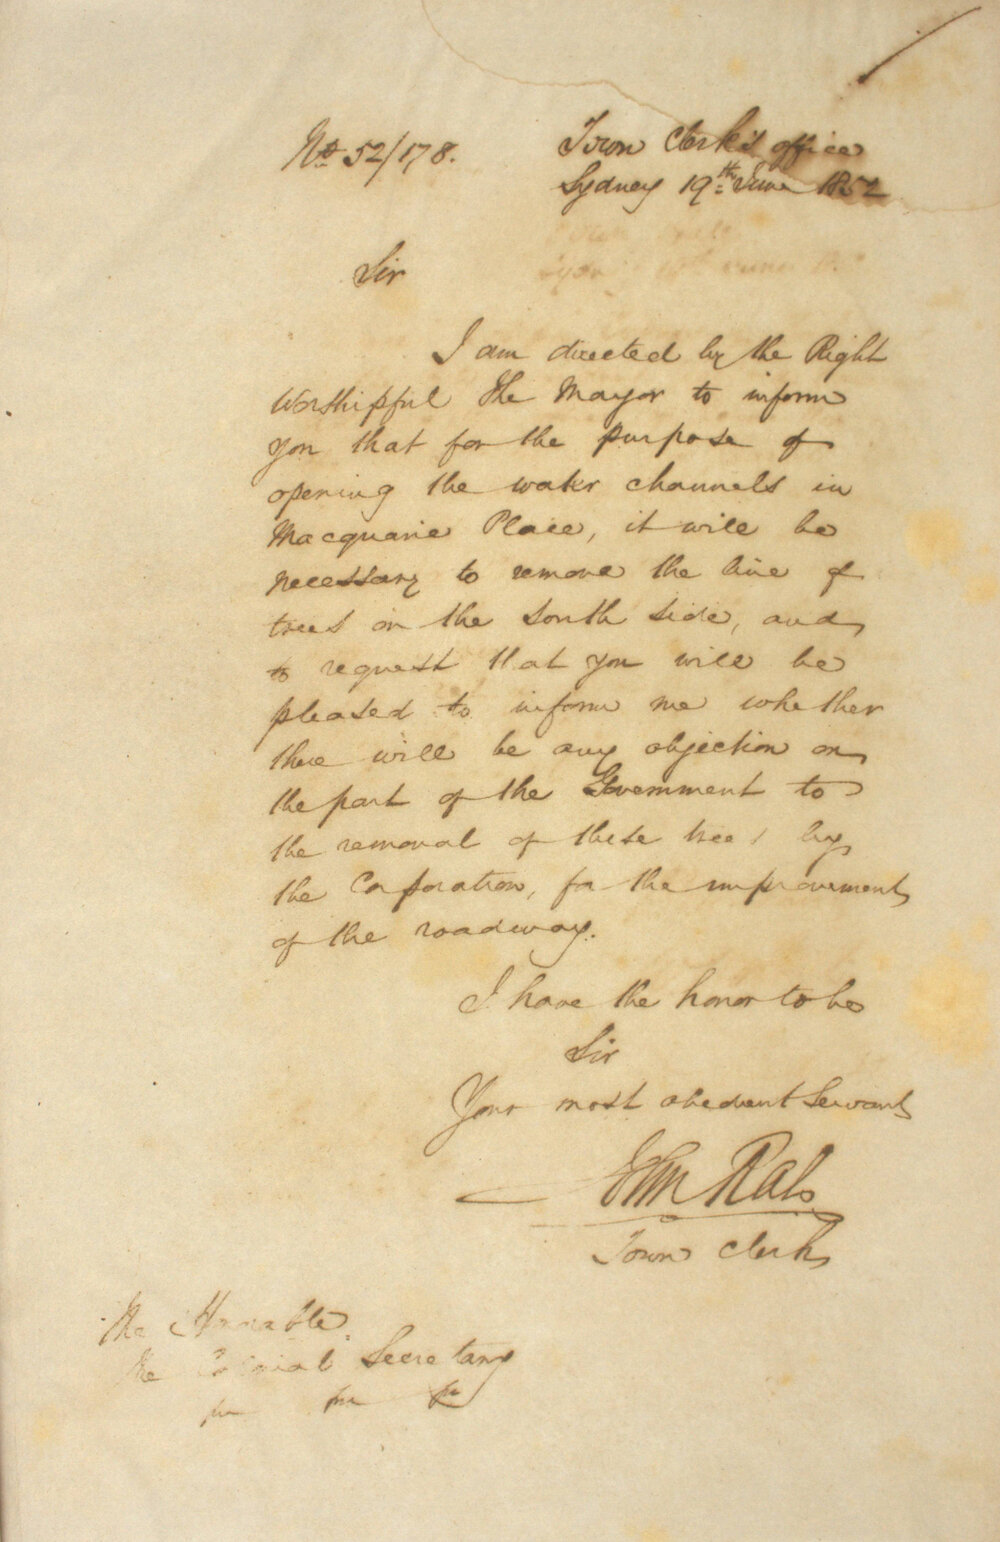 No 52/178.
Town Clerk's office
Sydney 19th June 1852
Sir
I am directed by the Right
Worshipful the Mayor to inform
you that for the purpose of
opening the water channels in
Macquarie Place, it will be
necessary to remove the line of
trees on the South side, and
to request that you will be
pleased to inform me whether
there will be any objection on
the part of the Government to
the removal of these trees by
the Corporation, for the improvement
of the roadway.
I have the honor to be
Sir
Your most obedient Servant
John Rae
Town Clerk
The Honorable
the Colonial Secretary